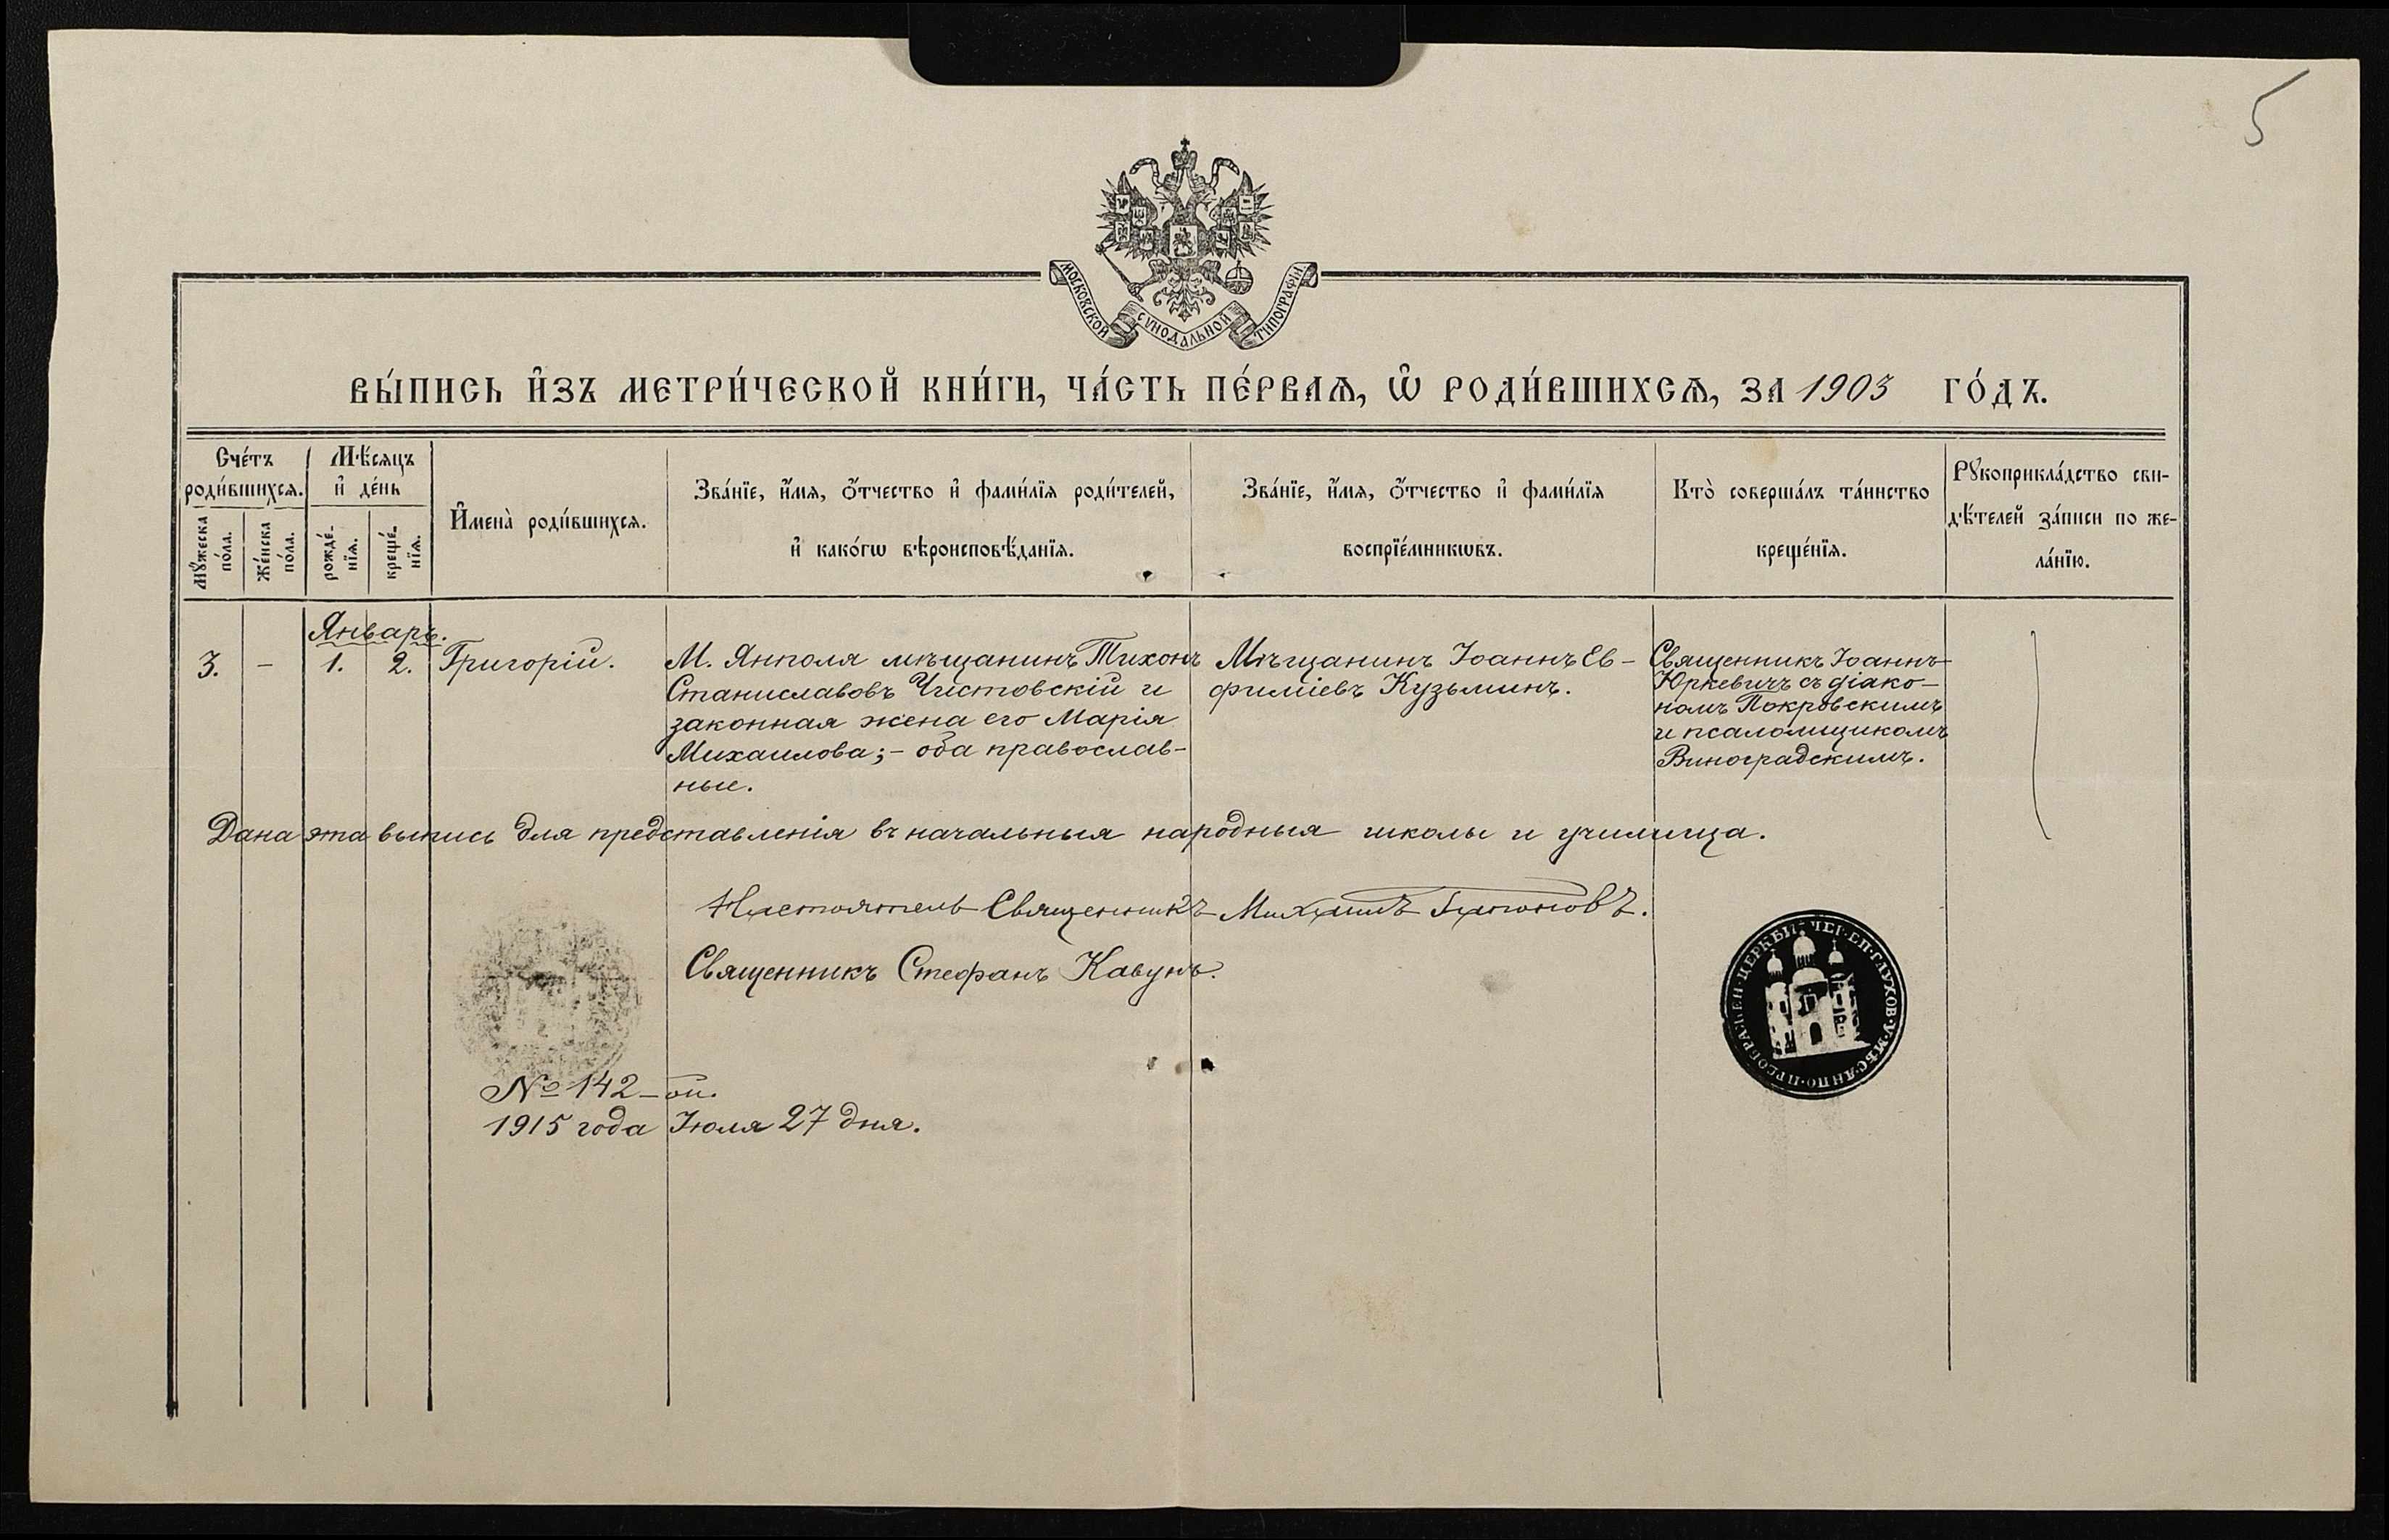 5
МОСКОВСКОЙ СУНОДАЛЬНОЙ ТИПОГРАФІИ
ВЫ́ПИСЬ И҆ЗЪ МЕТРИ́ЧЕСКОЙ КНИ́ГИ, ЧА́СТЬ ПЕ́РВАѦ, Ѡ҆ РОДИ́ВШИХСѦ, ЗА 1903 ГО́ДЪ.
Сче́тъ роди́вшихсѧ.
Мꙋ́жеска по́ла.
Же́нска по́ла.
Мѣ́сѧцъ и҆ де́нь
рожде́-нїѧ.
креще́-нїѧ.
И҆мена̀ роди́вшихсѧ.
Зва́нїе, и҆́мѧ, ѻ҆́тчество и҆ фами́лїѧ роди́телей,
и҆ како́гѡ вѣроисповѣ́данїѧ.
Зва́нїе, и҆́мѧ, ѻ҆́тчество и҆ фами́лїѧ
воспрїе́мникѡвъ.
Кто̀ соверша́лъ та́инство
креще́нїѧ.
Рꙋкоприкла́дство сви-
дѣ́телей за́писи по же-
ла́нїю.
Январь.
3. – 1. 2. Григорій.
М. Янполя мѣщанинъ Тихонъ
Станиславовъ Чистовскій и
законная жена его Марія
Михаилова; – оба православ-
ные.
Мѣщанинъ Іоаннъ Ев-
фиміевъ Кузьминъ.
Священникъ Іоаннъ
Юркевичъ съ діако-
номъ Покровскимъ
и псаломщикомъ
Виноградскимъ.
Дана эта выпись для представленія въ начальныя народныя школы и училища.
Настоятель Священникъ Михаилъ
Священникъ Стефанъ Кавунъ.
ПРЕОБРАЖЕН·ЦЕРКВИ·ЧЕР·ЕП·ГЛУХОВ·У·МѢС·ЯНПО·
№ 142–ой.
1915 года Іюля 27 дня.